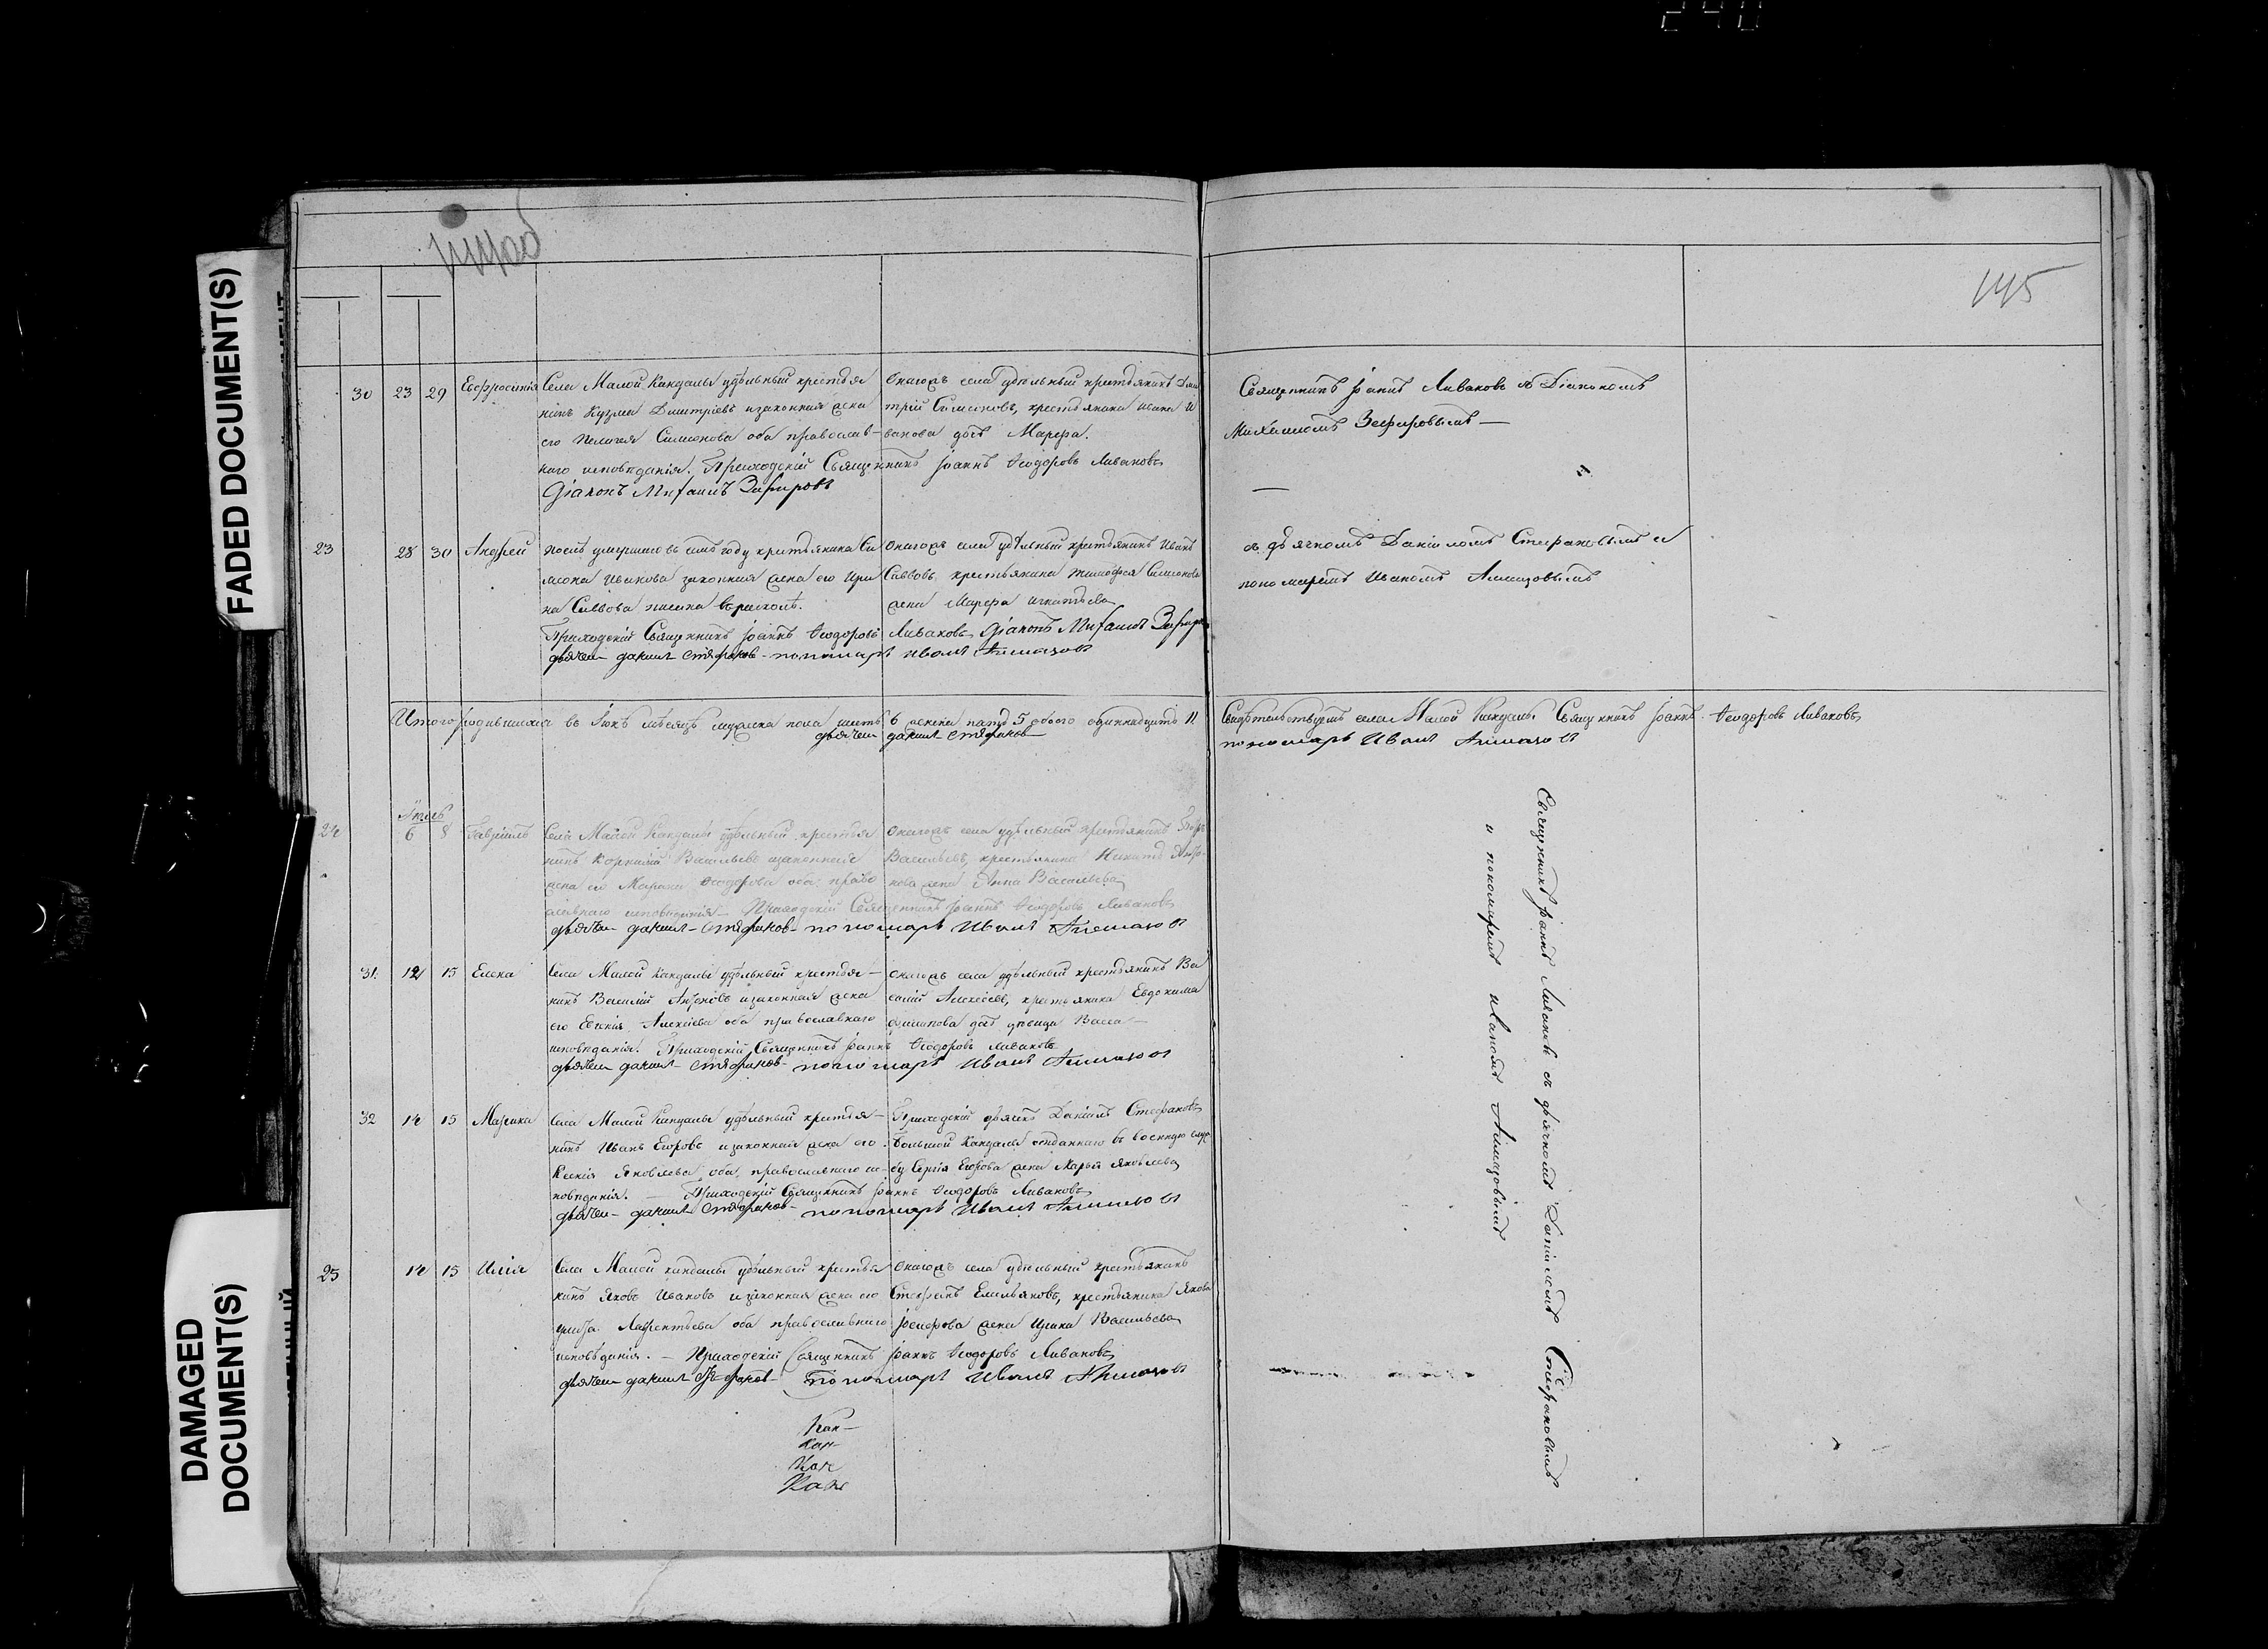 240
FADED DOCUMENT(S)
DAMAGED
DOCUMENT(S)
145
30 23 29 Евфросинія Села Малой Кандалы удѣльный крестья
нинъ Кузма Димитріевъ и законная жена
его Пелагея Симионова оба православ-
наго исповѣданія. Приходскій Священникъ Іоаннъ Ѳеодоровъ Ливановъ
Діаконъ Михаилъ Зефировъ
Онагожъ села удѣльный крестьянинъ Дими
трій Симионовъ, крестьянина Ивана И
ванова дочь Марфа.
Священникъ Іоаннъ Ливановъ съ Діакономъ
Михаиломъ Зефировымъ —
23 28 30 Андрей послѣ умершаго въ семъ году крестьянина Си
миона Иванова законная жена его Ири
на Саввова писана в расколѣ.
Приходскій Священникъ Іоаннъ Ѳеодоровъ Ливановъ Діаконъ Михаилъ Зефиров
дьячекъ Данилъ Стефановъ пономарь Иванъ Алмазовъ
Онагожъ села удѣльный крестьянинъ Иванъ
Саввовъ, крестьянина Тимофея Симионова
жена Марфа Игнатьева
съ дьячкомъ Даніиломъ Стефановымъ и
пономаремъ Иваномъ Алмазовымъ
Итого родившихся въ Іюнѣ мѣсяцѣ мужеска пола шесть 6 женска пять 5 обоего одиннадцать 11.
дьячекъ Данилъ Стефановъ
Свидѣтельствуемъ села Малой Кандалы Священникъ Іоаннъ Ѳеодоровъ Ливановъ
пономарь Иванъ Алмазовъ
Іюль
24 6 8 Гавріилъ Села Малой Кандалы удѣльный крестья
нинъ Корнилій Васильевъ и законная
жена его Марфа Ѳеодорова оба право
славнаго исповѣданія — Приходскій Священникъ Іоаннъ Ѳеодоровъ Ливановъ
дьячекъ Данилъ Стефановъ пономарь Иванъ Алмазовъ
Онагожъ села удѣльный крестьянинъ
Васильевъ, крестьянина Никиты
жена Анна Васильева
31. 12 15 Елена Села Малой Кандалы удѣльный крестья-
нинъ Василій и законная жена
его Евгенія Алексѣева оба православнаго
исповѣданія. Приходскій Священникъ Іоаннъ Ѳеодоровъ Ливановъ
дьячекъ Данилъ Стефановъ пономарь Иванъ Алмазовъ
Онагожъ села удѣльный крестьянинъ Ва
силій Алексѣевъ, крестьянина Евдокима
Филипова дочь дѣвица Васса —
32 14 15 Марина Села Малой Кандалы удѣльный крестья-
нинъ Иванъ Егоровъ и законная жена его
Ксенія Яковлева оба православнаго ис-
повѣданія. — Приходскій Священникъ Іоаннъ Ѳеодоровъ Ливановъ
дьячекъ Данилъ Стефановъ пономарь Иванъ Алмазовъ
Приходскій дьячекъ Даніилъ Стефановъ
Большой Кандалы отданнаго въ военную служ
бу Сергія Егорова жена Марья Яковлева
25 14 15 Илія Села Малой Кандалы удѣльный крестья
нинъ Яковъ Ивановъ и законная жена его
Лаврентьева оба православнаго
исповѣданія. — Приходскій Священникъ Іоаннъ Ѳеодоровъ Ливановъ
дьячекъ Данилъ Стефановъ пономарь Иванъ Алмазовъ
Онагожъ села удѣльный крестьянинъ
Стефанъ Емельяновъ, крестьянина Якова
Іосифова жена Ирина Васильева
Священникъ Іоаннъ Ливановъ съ дьячкомъ Даніиломъ Стефановымъ
и пономаремъ Иваномъ Алмазовымъ
Кан-
Кан-
Кан
Кан